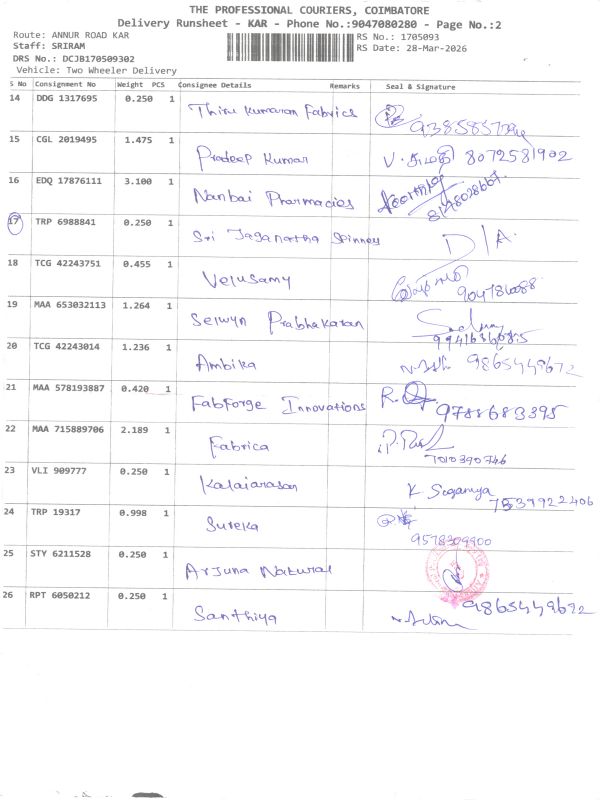 THE PROFESSIONAL COURIERS, COIMBATORE
Delivery Runsheet - KAR - Phone No.:9047080280 - Page No.:2
Route: ANNUR ROAD KAR
Staff: SRIRAM
DRS No.: DCJB170509302
Vehicle: Two Wheeler Delivery
RS No.: 1705093
RS Date: 28-Mar-2026
S No Consignment No Weight PCS Consignee Details Remarks Seal & Signature
14 DDG 1317695 0.250 1 Thiru Kumaran Fabrics
15 CGL 2019495 1.475 1 Pradeep Kumar V. சுமதி 8072581902
16 EDQ 17876111 3.100 1 Nanbai Pharmacies
17 TRP 6988841 0.250 1 Sri Jaganatha Spinners D/A.
18 TCG 42243751 0.455 1 Velusamy
19 MAA 653032113 1.264 1 Selwyn Prabhakaran
20 TCG 42243014 1.236 1 Ambika 9865449672
21 MAA 578193887 0.420 1 FabForge Innovations 9788683395
22 MAA 715889706 2.189 1 Fabrica 7010390746
23 VLI 909777 0.250 1 Kalaiarasan K 7539922406
24 TRP 19317 0.998 1 Sureka 9578309900
25 STY 6211528 0.250 1 Arjuna Natural
26 RPT 6050212 0.250 1 Santhiya 9865449672